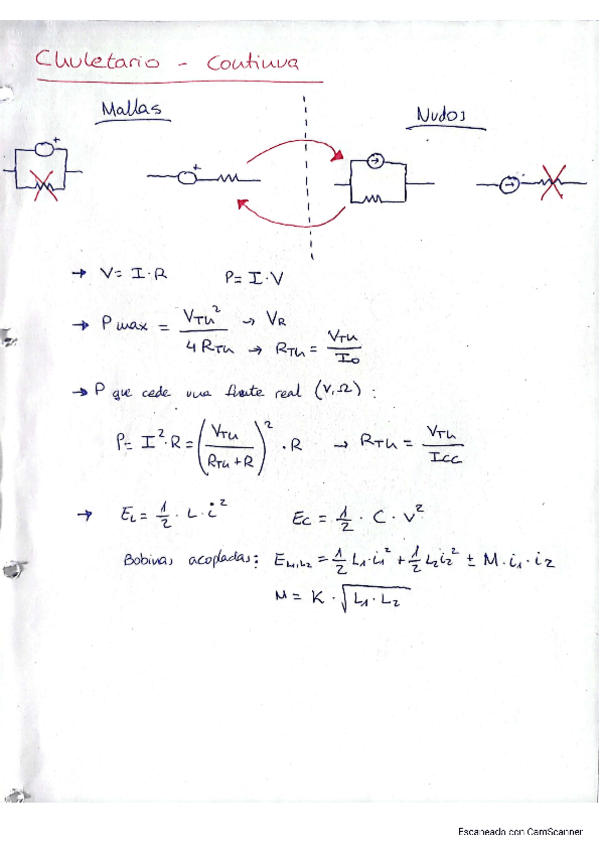 Chuletario - Continua
Mallas
Nudos
→ V = I·R P = I·V
→ Pmax = V_Th² / 4 R_Th → V_R → R_Th = V_Th / I_0
→ P que cede una fuente real (V, Ω) :
P = I²·R = (V_Th / (R_Th + R))² · R → R_Th = V_Th / I_CC
→ E_L = 1/2 · L · i² E_C = 1/2 · C · V²
Bobinas acopladas: E_L1,L2 = 1/2 L_1·i_1² + 1/2 L_2 i_2² ± M·i_1·i_2
M = K · √(L_1·L_2)
Escaneado con CamScanner